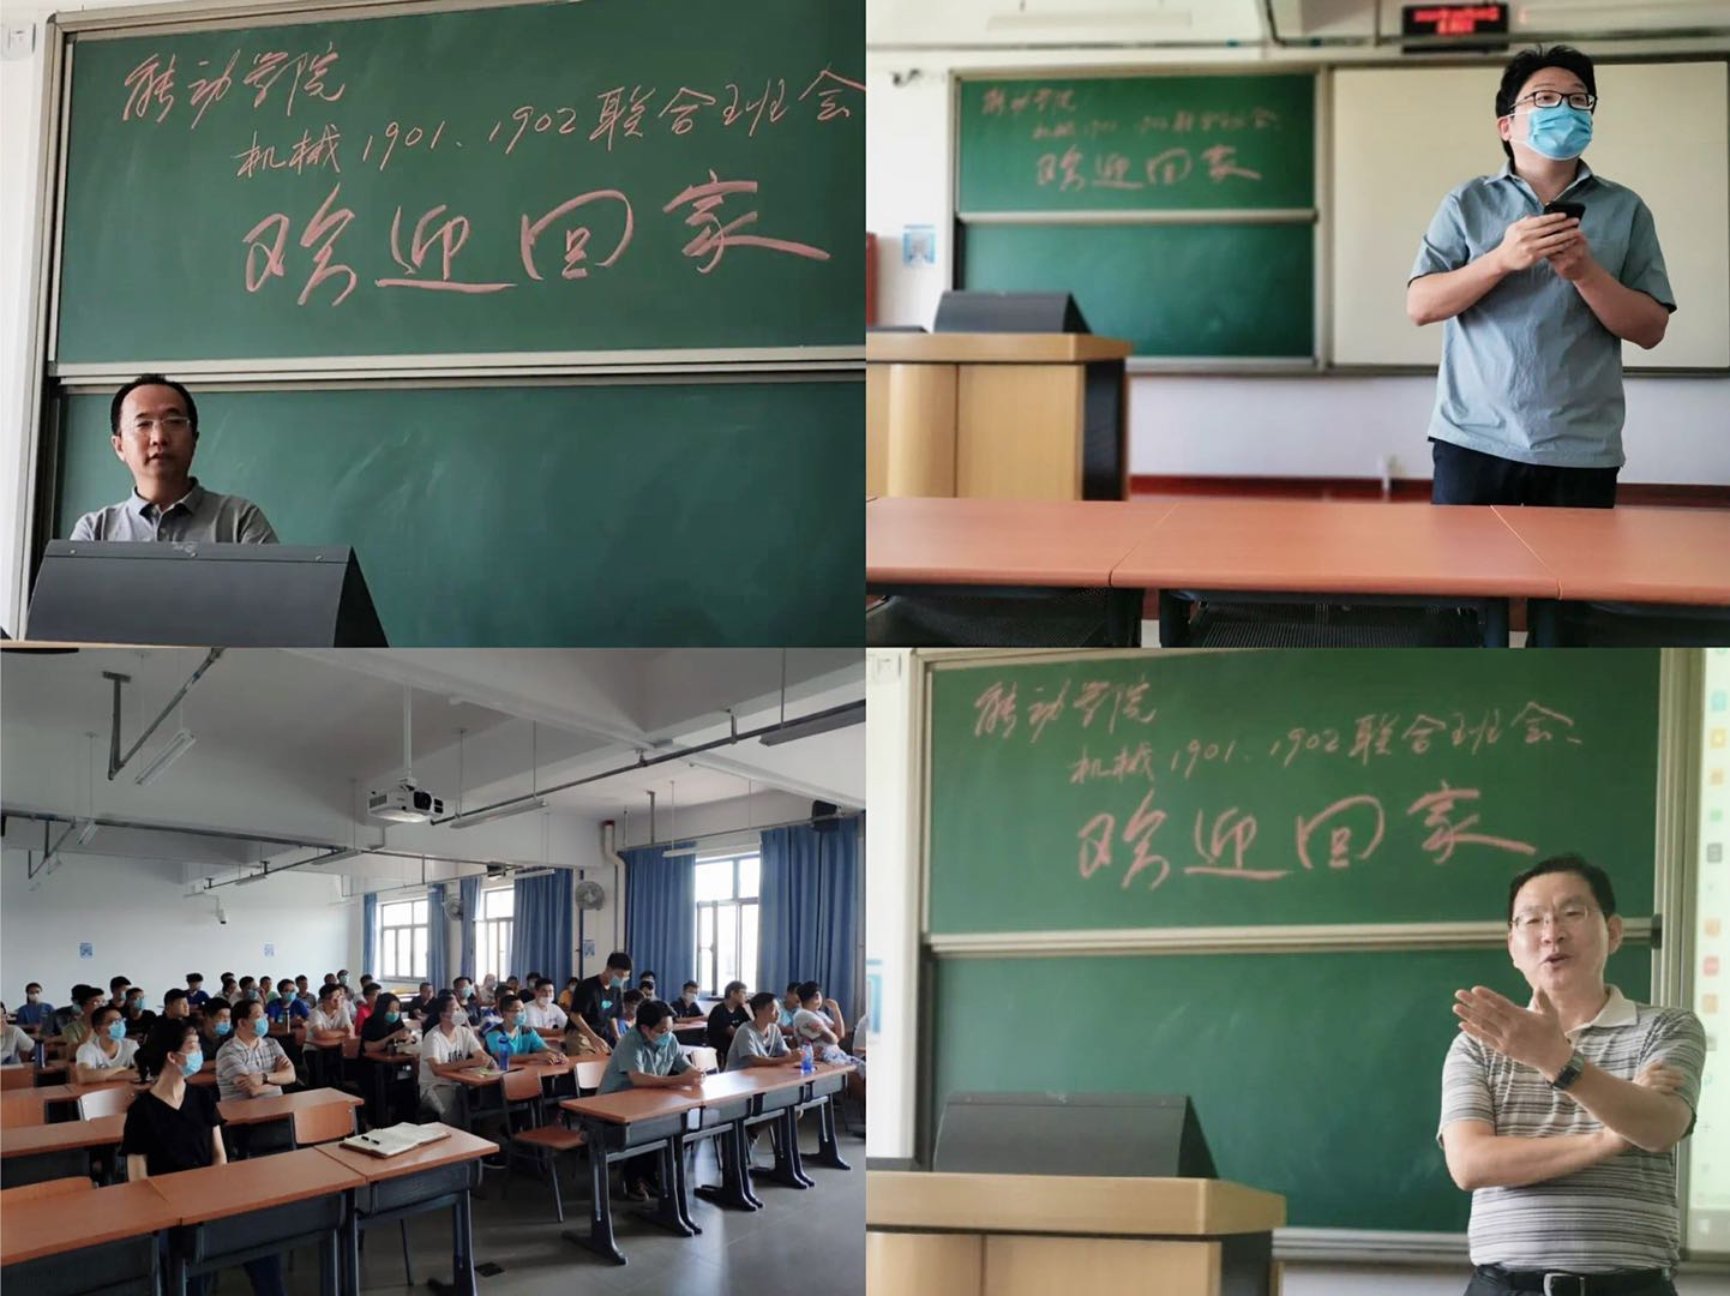 能动学院
机械1901、1902联合班会
欢迎回家
能动学院
机械1901、1902联合班会
欢迎回家
能动学院
机械1901、1902联合班会
欢迎回家